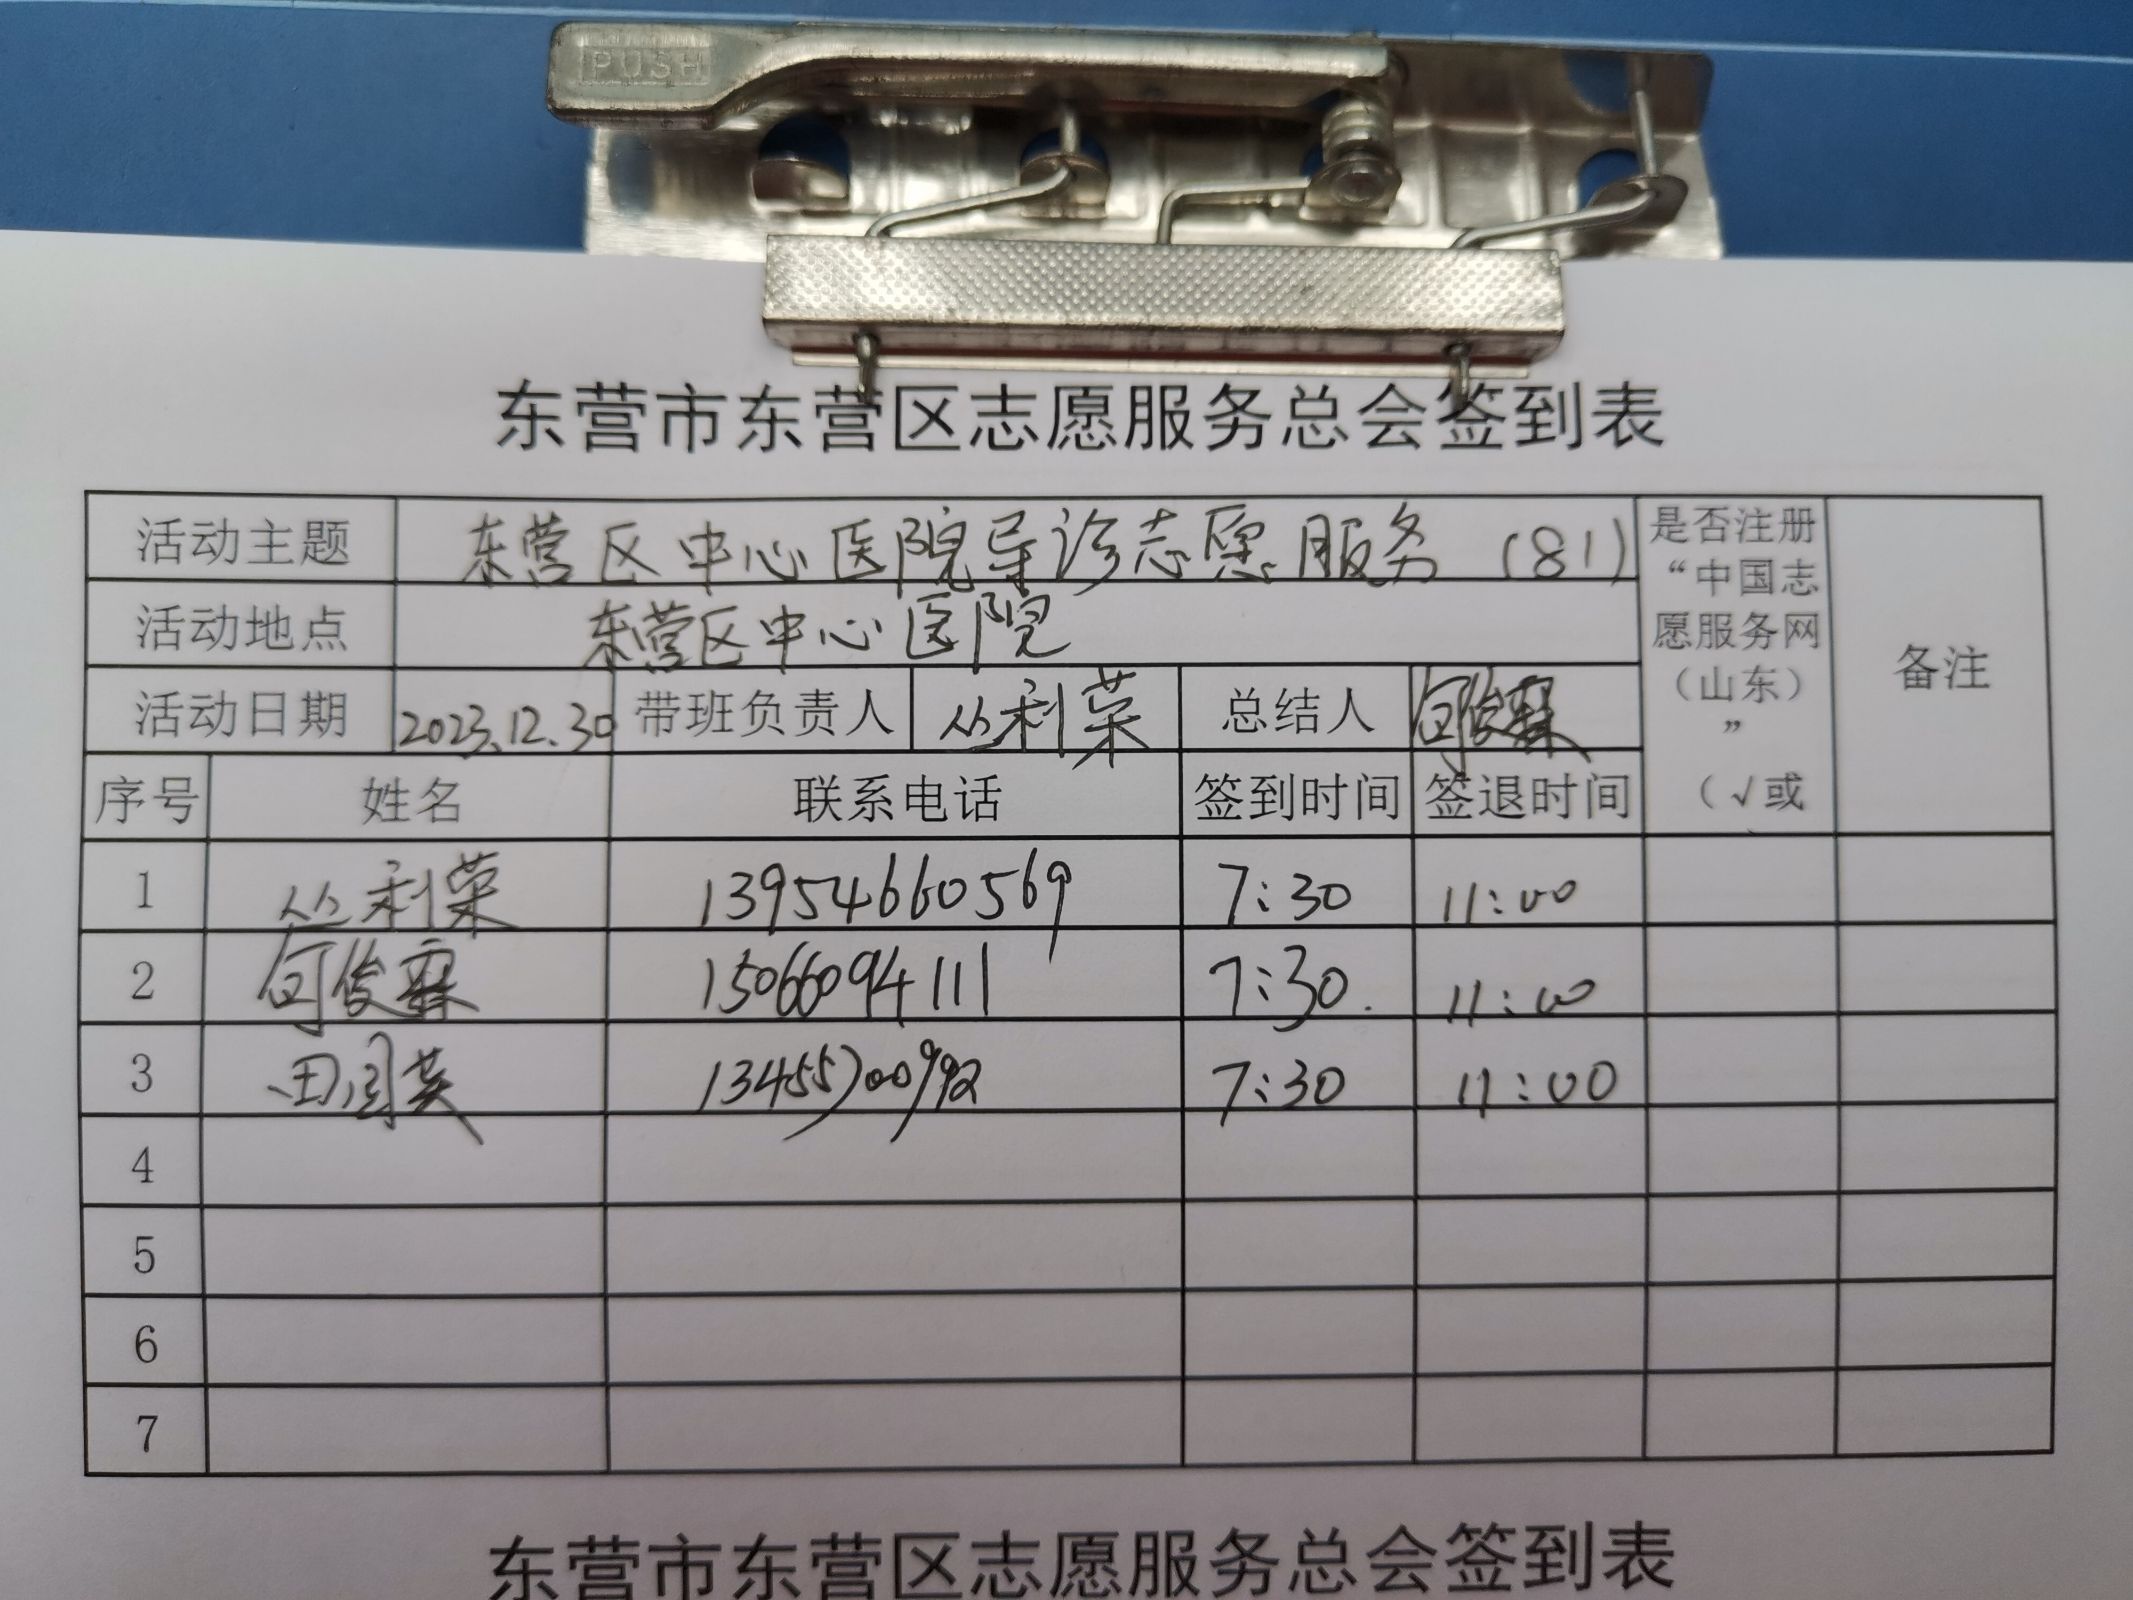 PUSH
东营市东营区志愿服务总会签到表
活动主题 东营区中心医院导诊志愿服务（81） 是否注册“中国志愿服务网（山东）”（√或 备注
活动地点 东营区中心医院
活动日期 2023.12.30 带班负责人 丛利荣 总结人 何俊霖
序号 姓名 联系电话 签到时间 签退时间
1 丛利荣 13954660569 7:30 11:00
2 何俊霖 15066094111 7:30. 11:00
3 田闰英 13455700992 7:30 11:00
4
5
6
7
东营市东营区志愿服务总会签到表